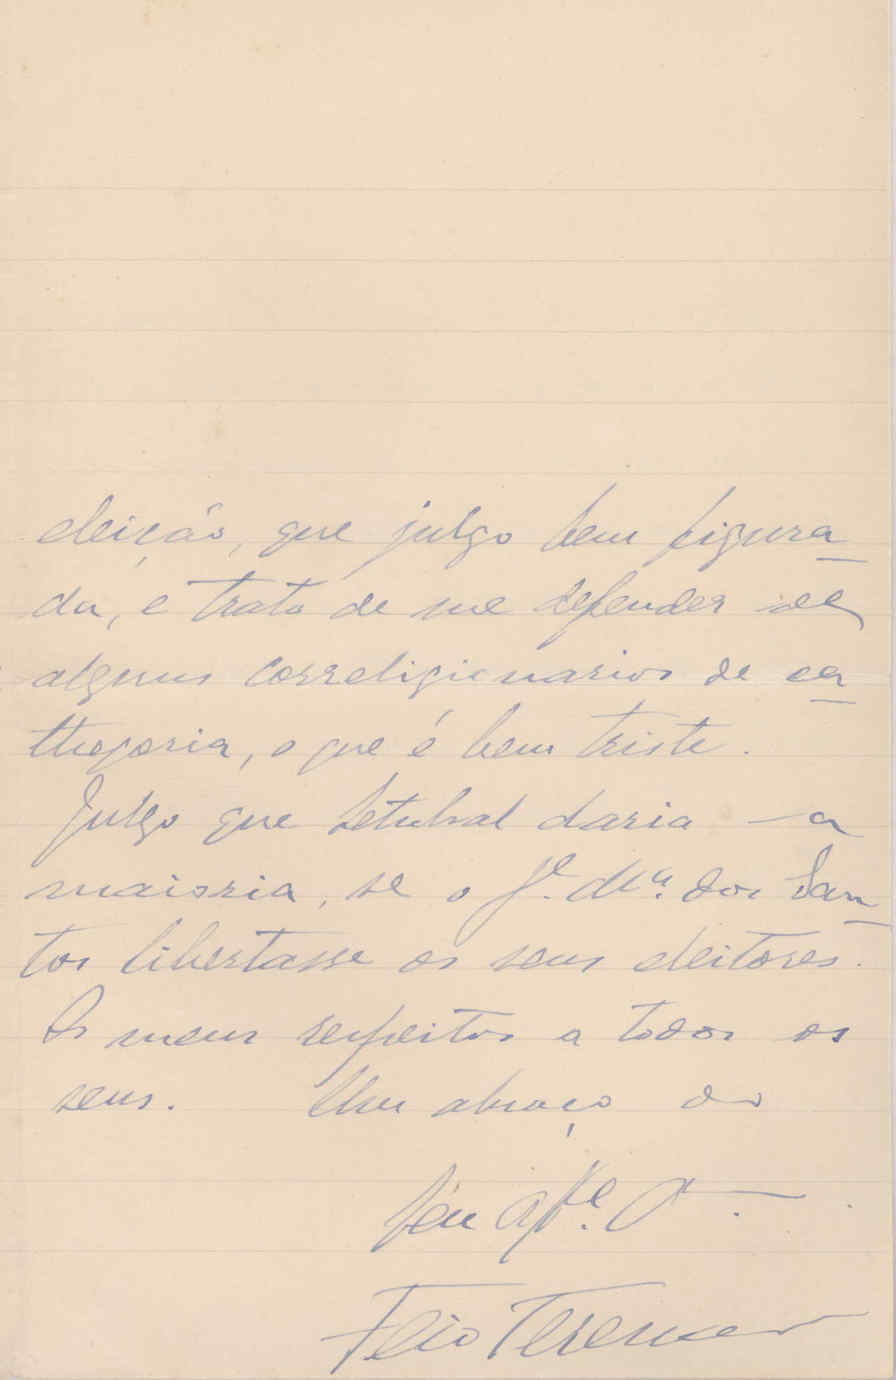 eleição, que julgo bem figura-
da, e trato de me defender de
alguns correligionarios de ca-
thegoria, o que é bem triste.
Julgo que Setubal daria a
maioria, se o Je. Ma. dos San-
tos libertasse os seus eleitores.
Os meus respeitos a todos os
seus. Um abraço do
Seu
Feio Terenas